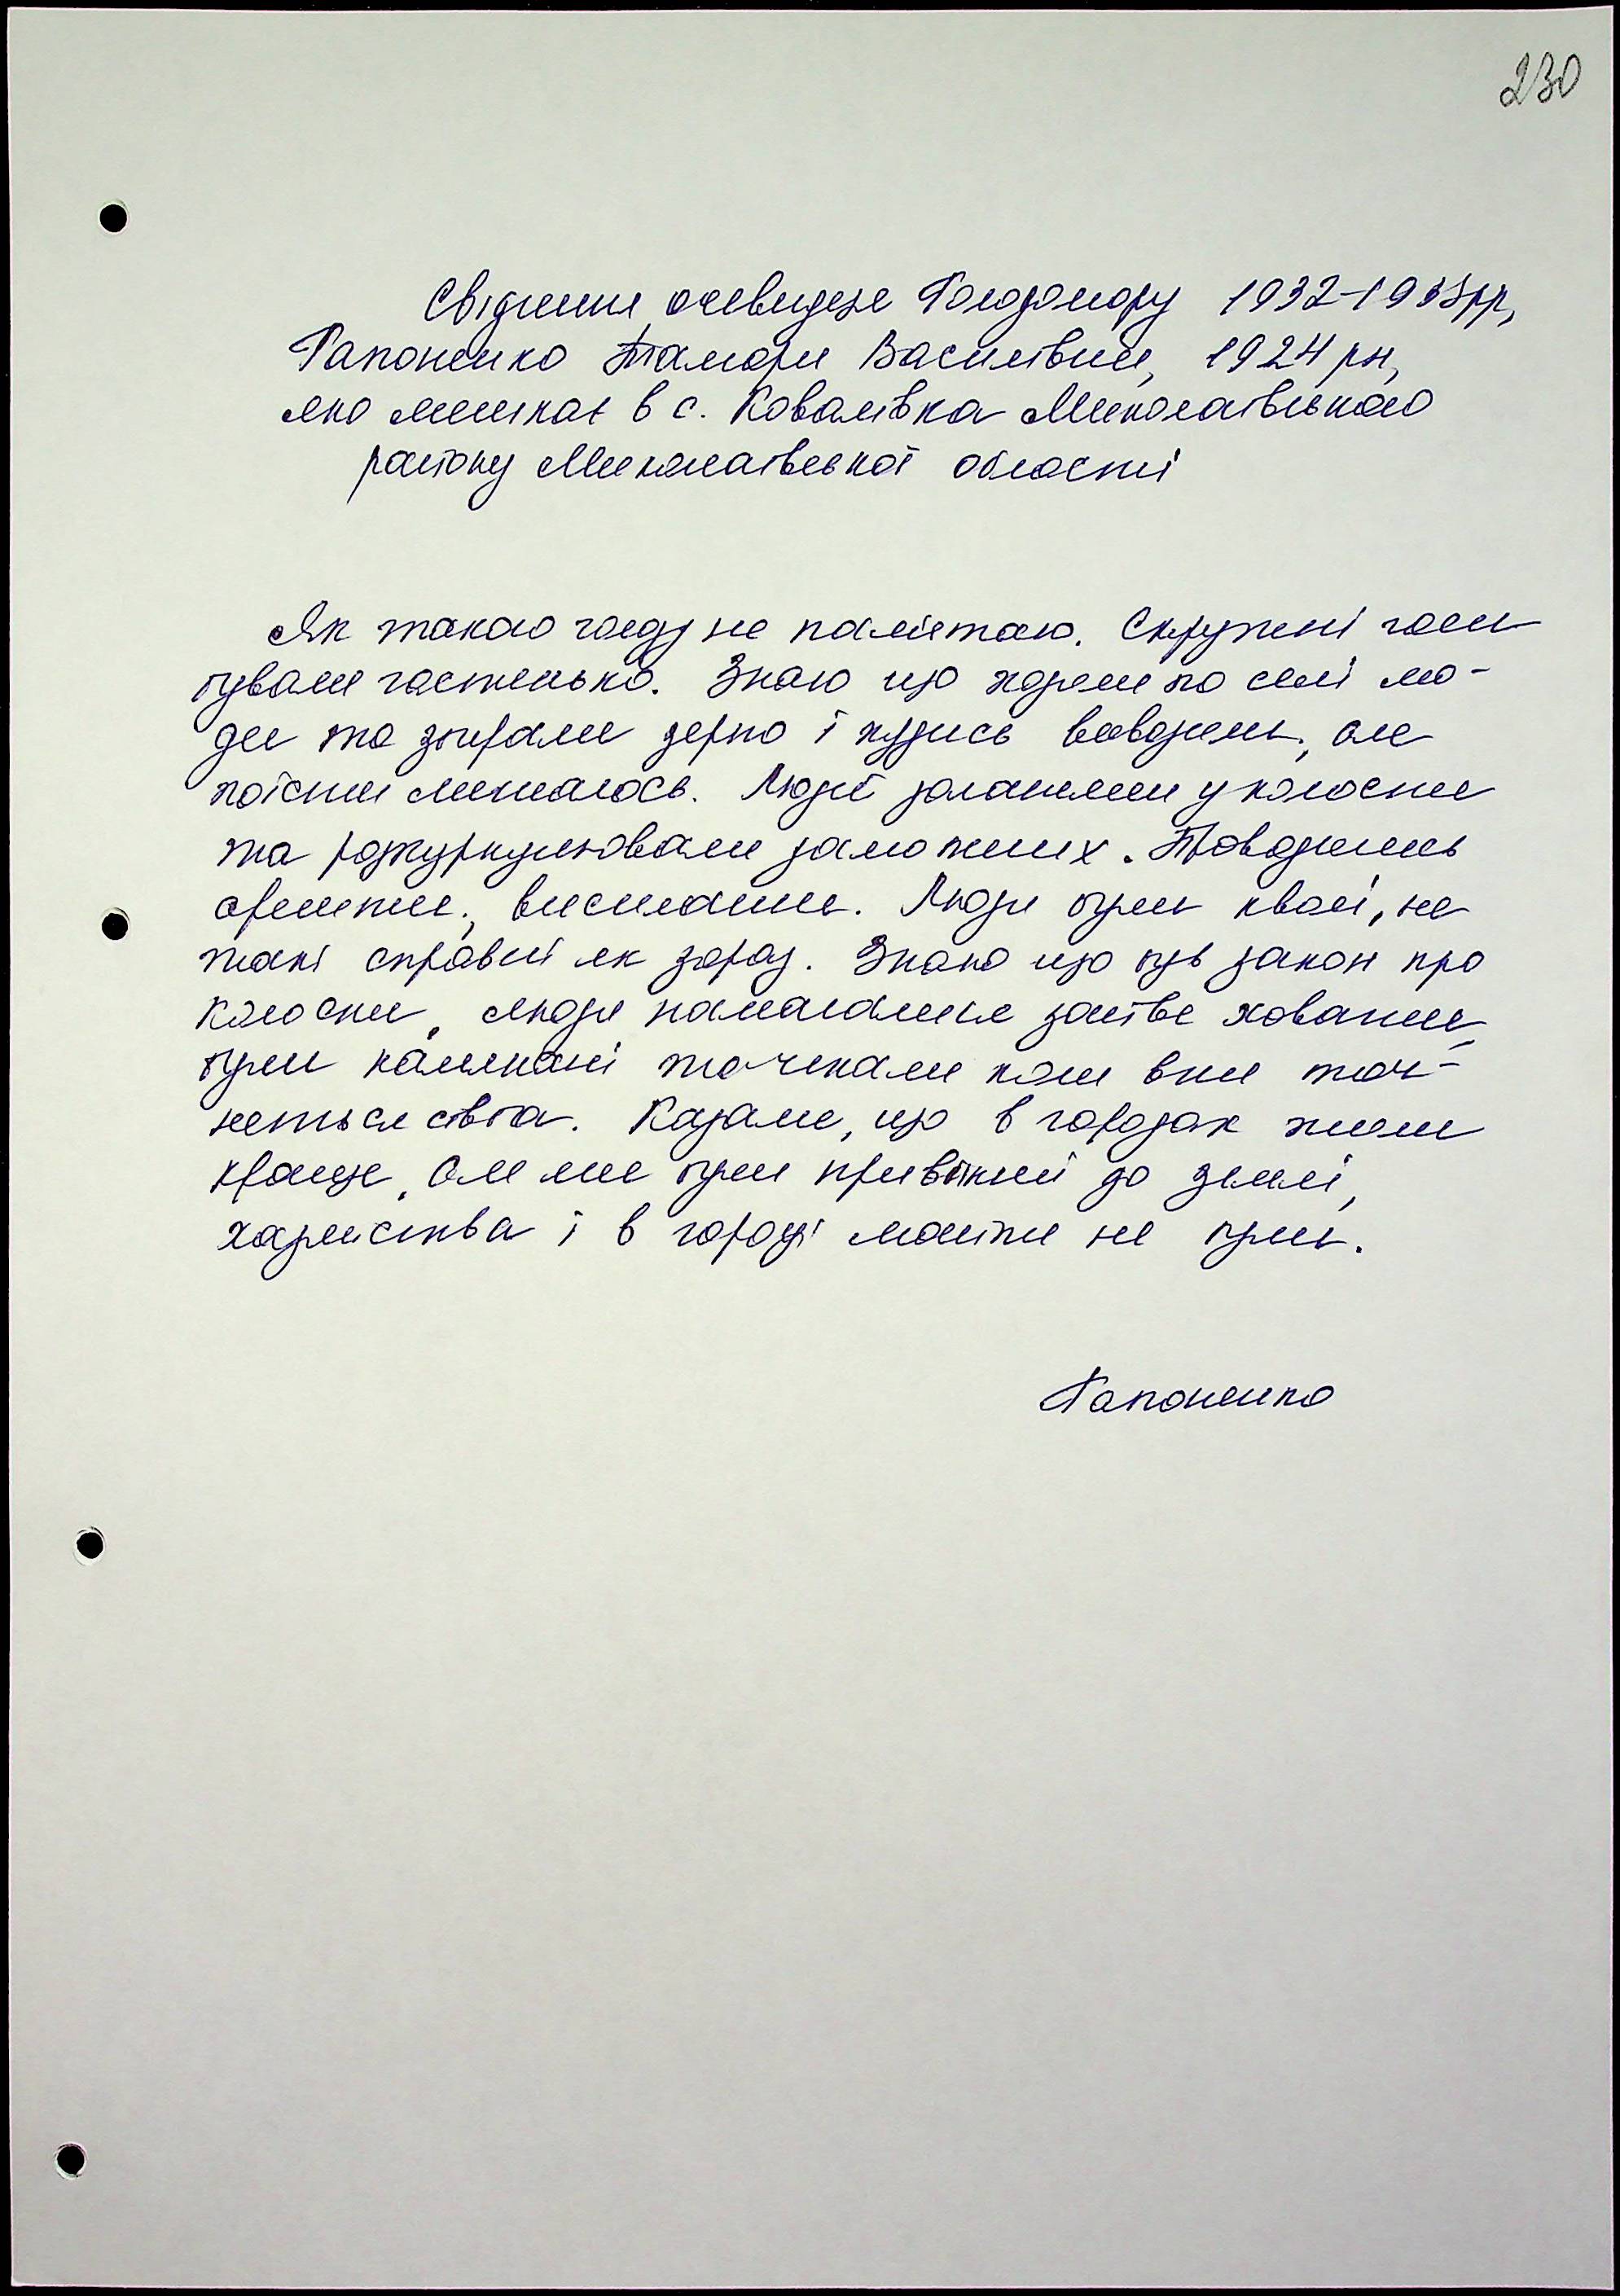 230
Свідчення очевидця Голодомору 1932-1933рр,
Гапоненко Тамари Василівни, 1924 рн,
яка мешкає в с. Ковалівка Миколаївського
району Миколаївської області
Як такого голоду не памятаю. Скрутні часи
бували частенько. Знаю що ходили по селі лю-
ди та збирали зерно і кудись вивозили, але
поїсти лишалось. Людей заганяли у колоспи
та розкуркулювали заможних. Проводились
арешти, висилання. Люди були кволі, не
такі справні як зараз. Знаю що був закон про
колоски, люди намагалися зайве ховати,
були налякані та чекали коли вже поч-
неться сівба. Казали, що в городах жили
краще, але ми були привязані до землі,
хазяйства і в городі майже не були.
Гапоненко